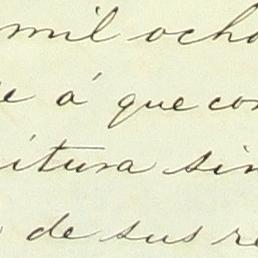 mil ocho
e á que con
itura sin
de sus re